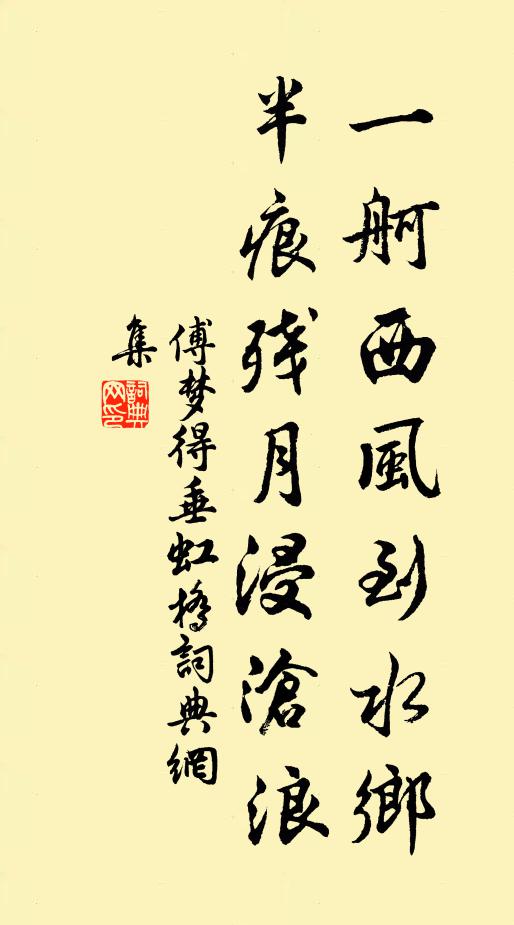 一舸西風到水鄉
半痕残月浸滄浪
傅梦得垂虹橋詞典網
集
詞典
网印